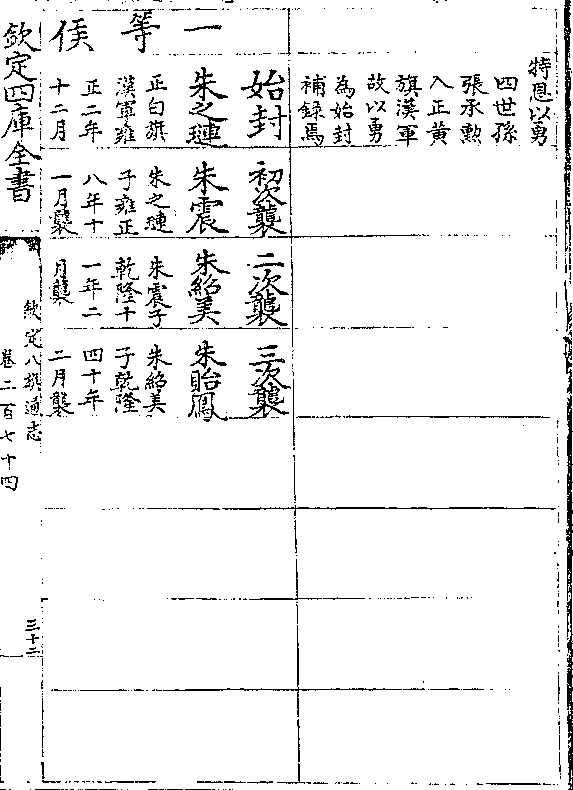 特恩以勇
四世孫
張承勲
入正黄
旗漢軍
故以勇
為始封
補録焉
一等侯
始封
朱之璉
正白旗
漢軍雍
正二年
十二月
初次襲
朱震
朱之璉
子雍正
八年十
一月襲
二次襲
朱紹美
朱震子
乾隆十
一年二
月襲
三次襲
朱貽鳳
朱紹美
子乾隆
四十年
二月襲
欽定四庫全書
欽定八旗通志
卷二百七十四
三十二